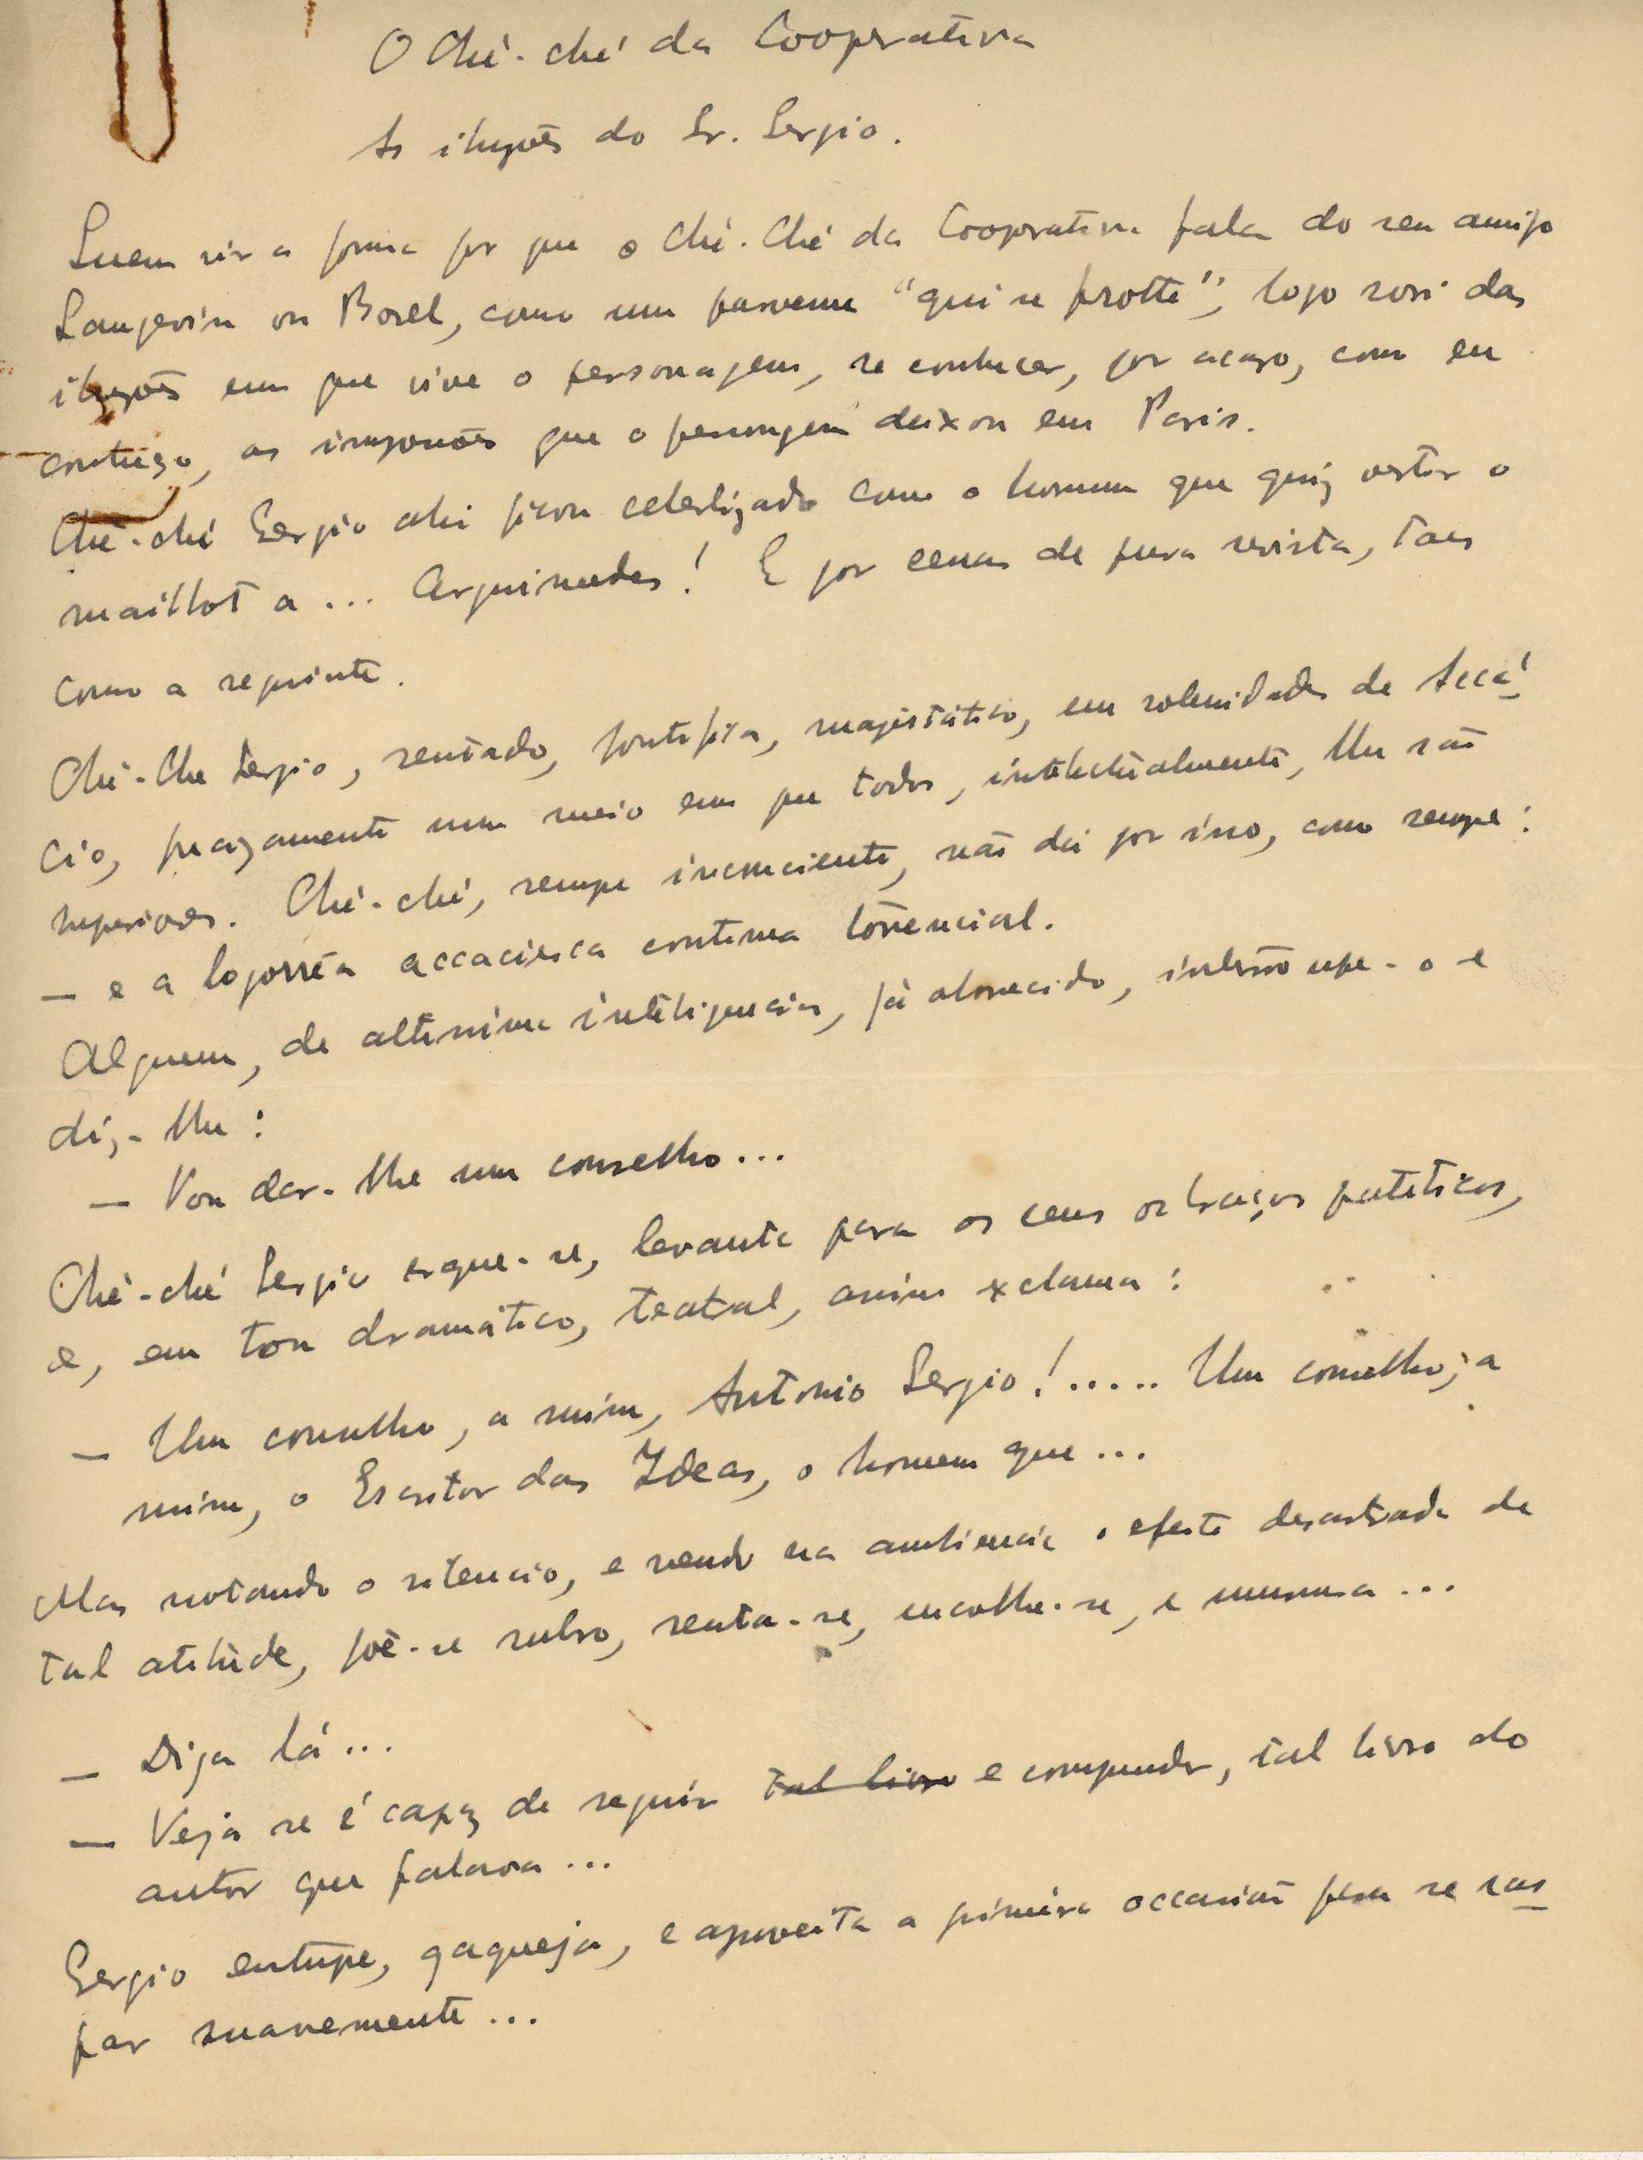 O Ché-ché da Cooperativa
As ilusões do Sr. Sergio.
Quem vir a forma por que o Ché-Ché da Cooperativa fala do seu amigo
Langevin ou Borel, como um parvenu "qui se frotte", logo sorri das
ilusões em que vive o personagem, se conhecer, por acaso, com eu
conheço, as impressões que o personagem deixou em Paris.
Ché-ché Sergio ahi ficou celebrizado como o homem que quiz vestir o
maillot a ... Arquimedes! E por cenas de pura revista, taes
como a seguinte.
Ché-Che Sergio, sentado, pontifica, magistático, em solenidades de Accá
cio, precizamente num meio em que todos, intelectualmente, lhe são
superiores. Ché-ché, sempre inconsciente, não dá por isso, como sempre:
— e a logorrêa accaciesca continua torrencial.
Alguem, de altissima inteligencia, já aborrecido, interrompe-o e
diz-lhe:
— Vou dar-lhe um conselho...
Ché-ché Sergio ergue-se, levanta para os ceus os braços pateticos,
e, em tom dramático, teatral, assim exclama:
— Um conselho, a mim, Antonio Sergio!..... Um conselho, a
mim, o Escritor das Ideas, o homem que...
Mas notando o silencio, e vendo na audiencia o efeito desastrado de
tal atitude, põe-se rubro, senta-se, encolhe-se, e murmura...
— Diga lá...
— Veja se é capaz de seguir tal livro e compreender, tal livro do
autor que falava...
Sergio entupe, gagueja, e aproveita a primeira occasião para se ras
par suavemente...